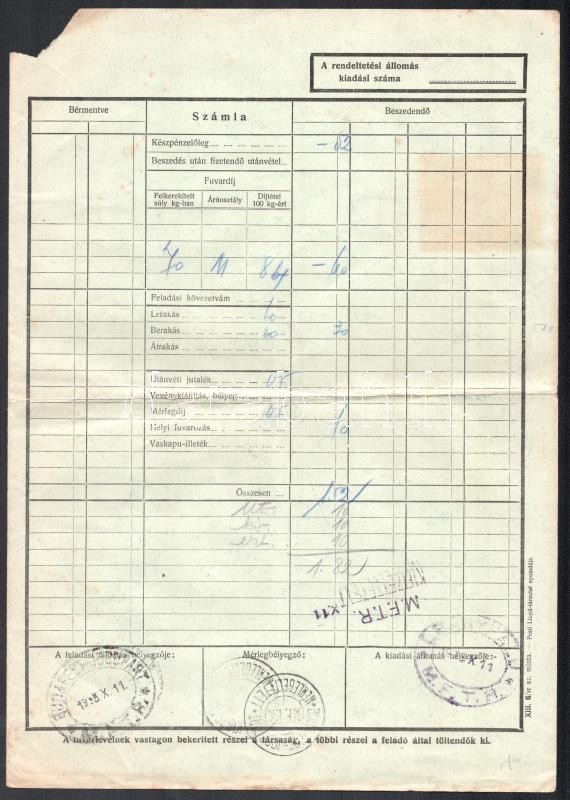 A rendeltetési állomás
kiadási száma
Bérmentve
Számla
Beszedendő
Készpénzelőleg
– 52
Beszedés után fizetendő utánvétel
Fuvardíj
Felkerekített súly kg-ban
Áruosztály
Díjtétel 100 kg-ért
70 11 86 – 60
Feladási kövezetvám
Lerakás 10
Berakás 20 30
Átrakás
Utánvéti jutalék 05
Vevénykiállítás, bélyeg
Mérlegdíj 05
Helyi fuvarozás 10
Vaskapu-illeték
Összesen 1.52
10
10
10
1.82
M.F.T.R.
X 11
A feladási állomás bélyegzője:
Mérlegbélyegző:
A kiadási állomás bélyegzője:
1935.X.11.
X 11
A fuvarlevélnek vastagon bekerített részei a társaság, a többi részei a feladó által töltendők ki.
XIII. 6/er sz. minta. Pesti Lloyd-társulat nyomdája.